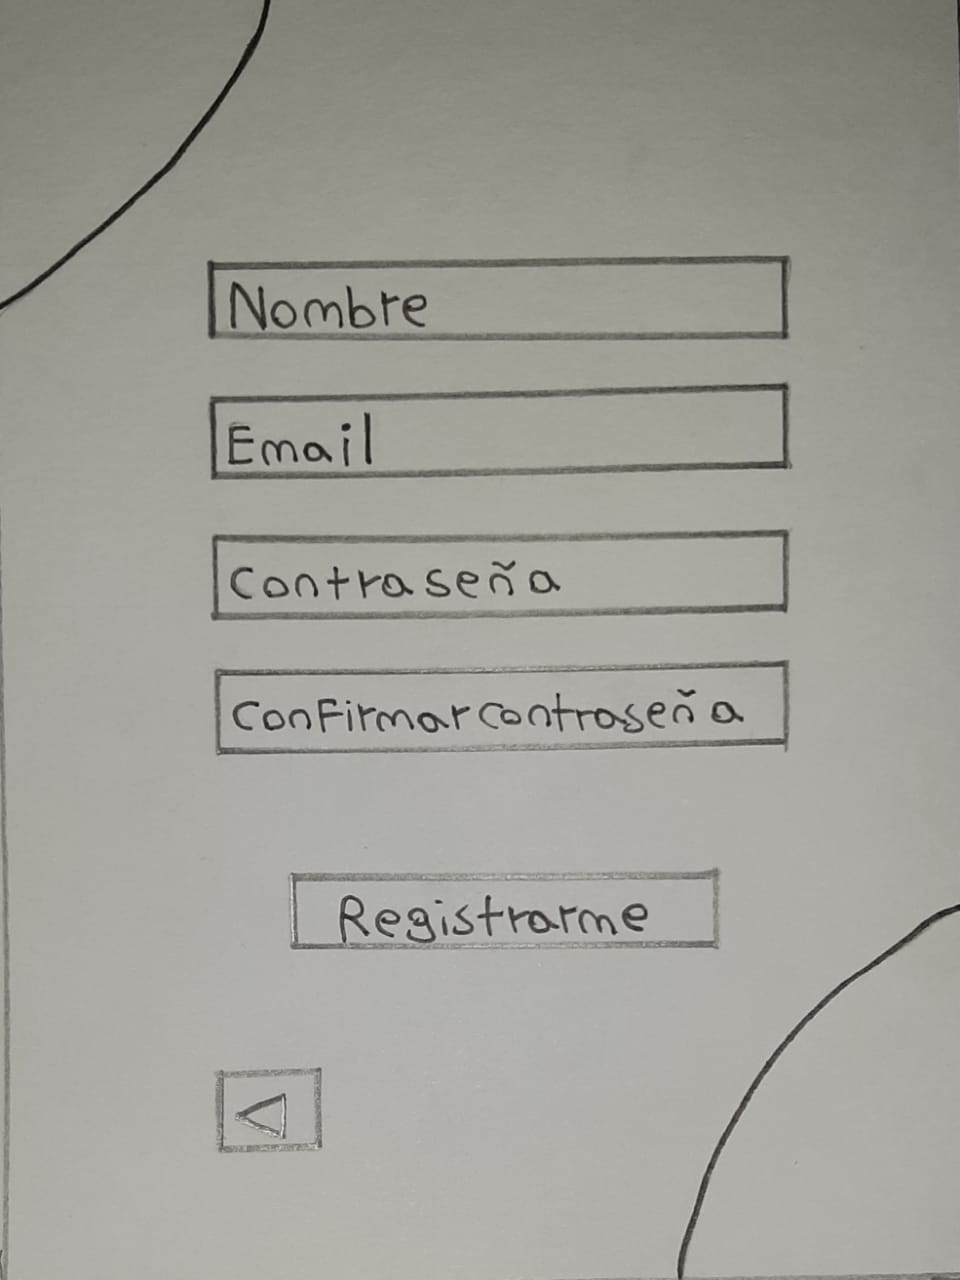 Nombre
Email
Contraseña
Confirmar contraseña
Registrarme